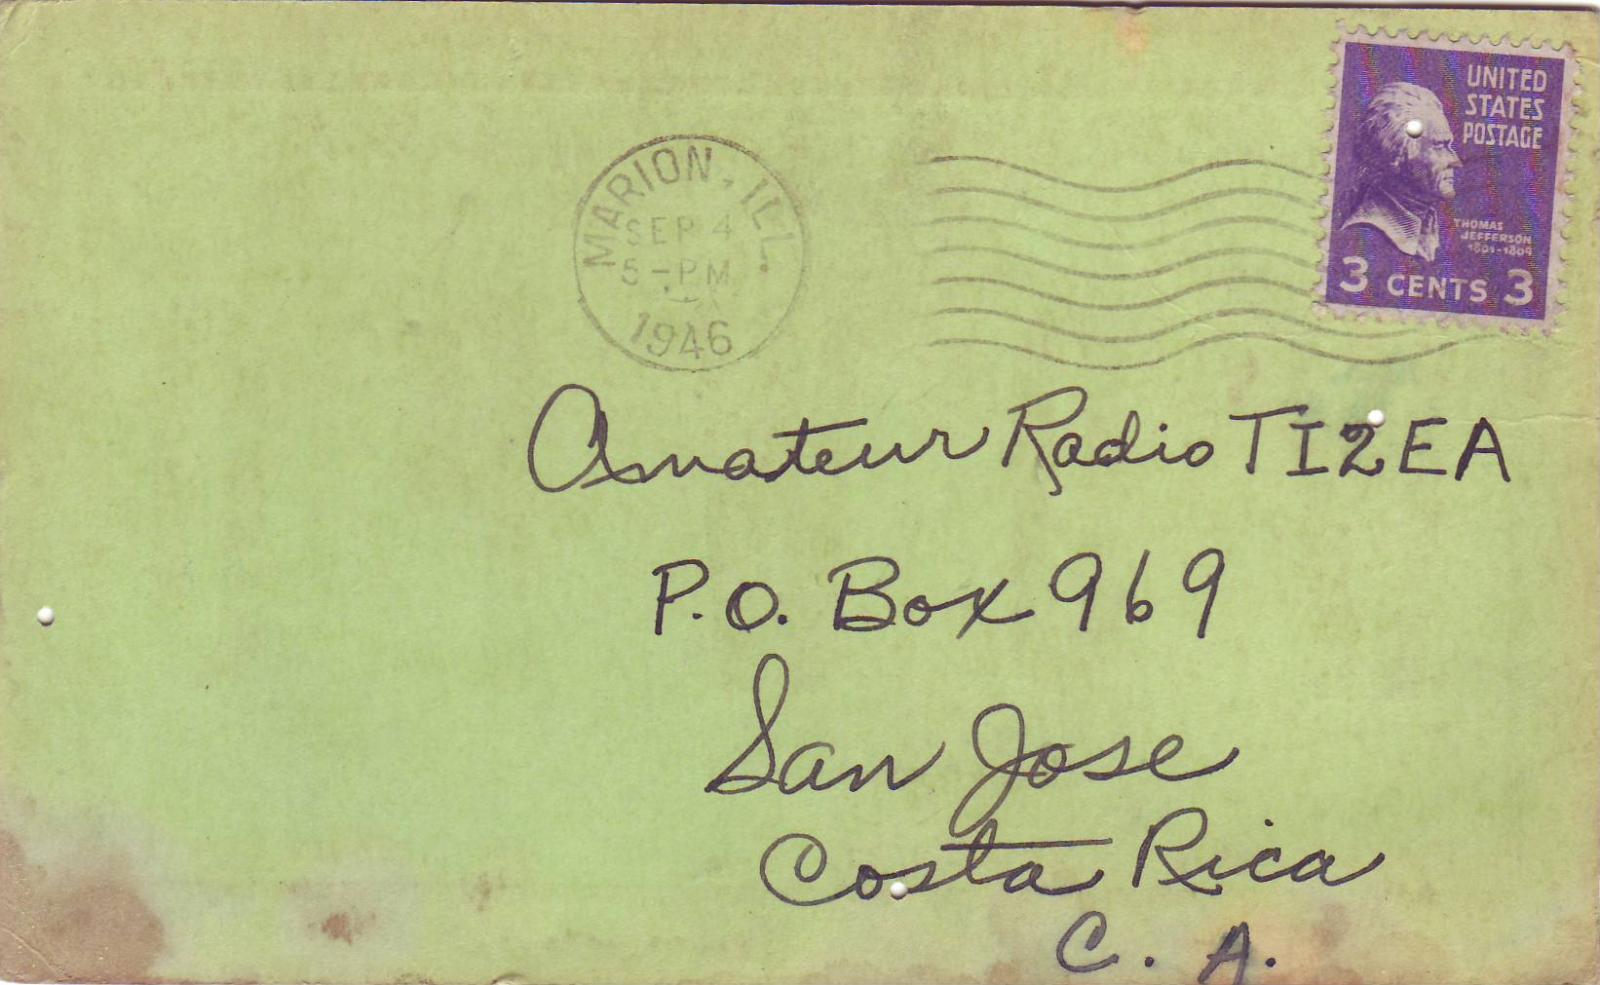 UNITED
STATES
POSTAGE
THOMAS
JEFFERSON
1801-1809
3 CENTS 3
MARION, ILL.
SEP 4
5-PM
1946
Amateur Radio TI2EA
P.O. Box 969
San Jose
Costa Rica
C. A.